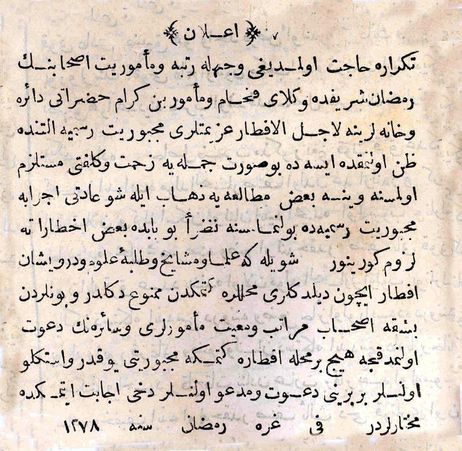 اعلان
تكراره حاجت اولمديغى وجهله رتبه ومأموريت اصحابنك
رمضان شريفده وكلاى فخام ومأمورين كرام حضراتى دائره
وخانه لرينه لاجل الافطار عزيمتلرى مجبوريت رسميه التنده
ظن اولنمقده ايسه ده بوصورت جمله يه زحمت وكلفتى مستلزم
اولمسنه وينه بعض مطالعه يه ذهاب ايله شو عادتى اجرايه
مجبوريت رسميه ده بولنمامسنه نظراً بو بابده بعض اخطاراته
لزوم كورينور شويله كه علما ومشايخ وطلبۀ علوم ودرويشان
افطار ايچون ديلدكلرى محللره كتمكدن ممنوع دكلدر وبونلردن
بشقه اصحاب مراتب ومعيت مأمورلرى وسائره نك دعوت
اولنمدقجه هيچ بر محله افطاره كتمكه مجبورتى يوقدر واستكلو
اولنلر بربرينى دعوت ومدعو اولنلر دخى اجابت ايتمكده
مختارلردر فى غره رمضان سنه ١٢٧٨